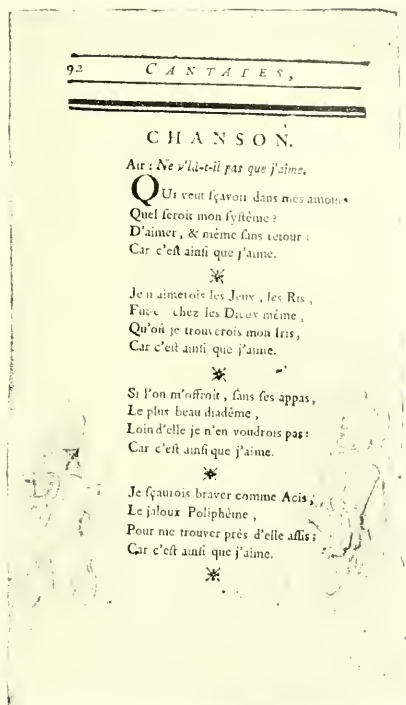 92 CANTATES,
CHANSON.
AIR : Ne v'là-t-il pas que j'aime.
QUI veut ſçavoir dans mes amours
Quel ſeroit mon ſyſtême ?
D'aimer, & même ſans retour :
Car c'eſt ainſi que j'aime.
Je n'aimerois les Jeux, les Ris,
chez les Dieux même,
Qu'où je trouverois mon Iris,
Car c'eſt ainſi que j'aime.
Si l'on m'offroit, ſans ſes appas,
Le plus beau diadême,
Loin d'elle je n'en voudrois pas :
Car c'eſt ainſi que j'aime.
Je ſçaurois braver comme Acis,
Le jaloux Poliphême,
Pour me trouver près d'elle aſſis ;
Car c'eſt ainſi que j'aime.